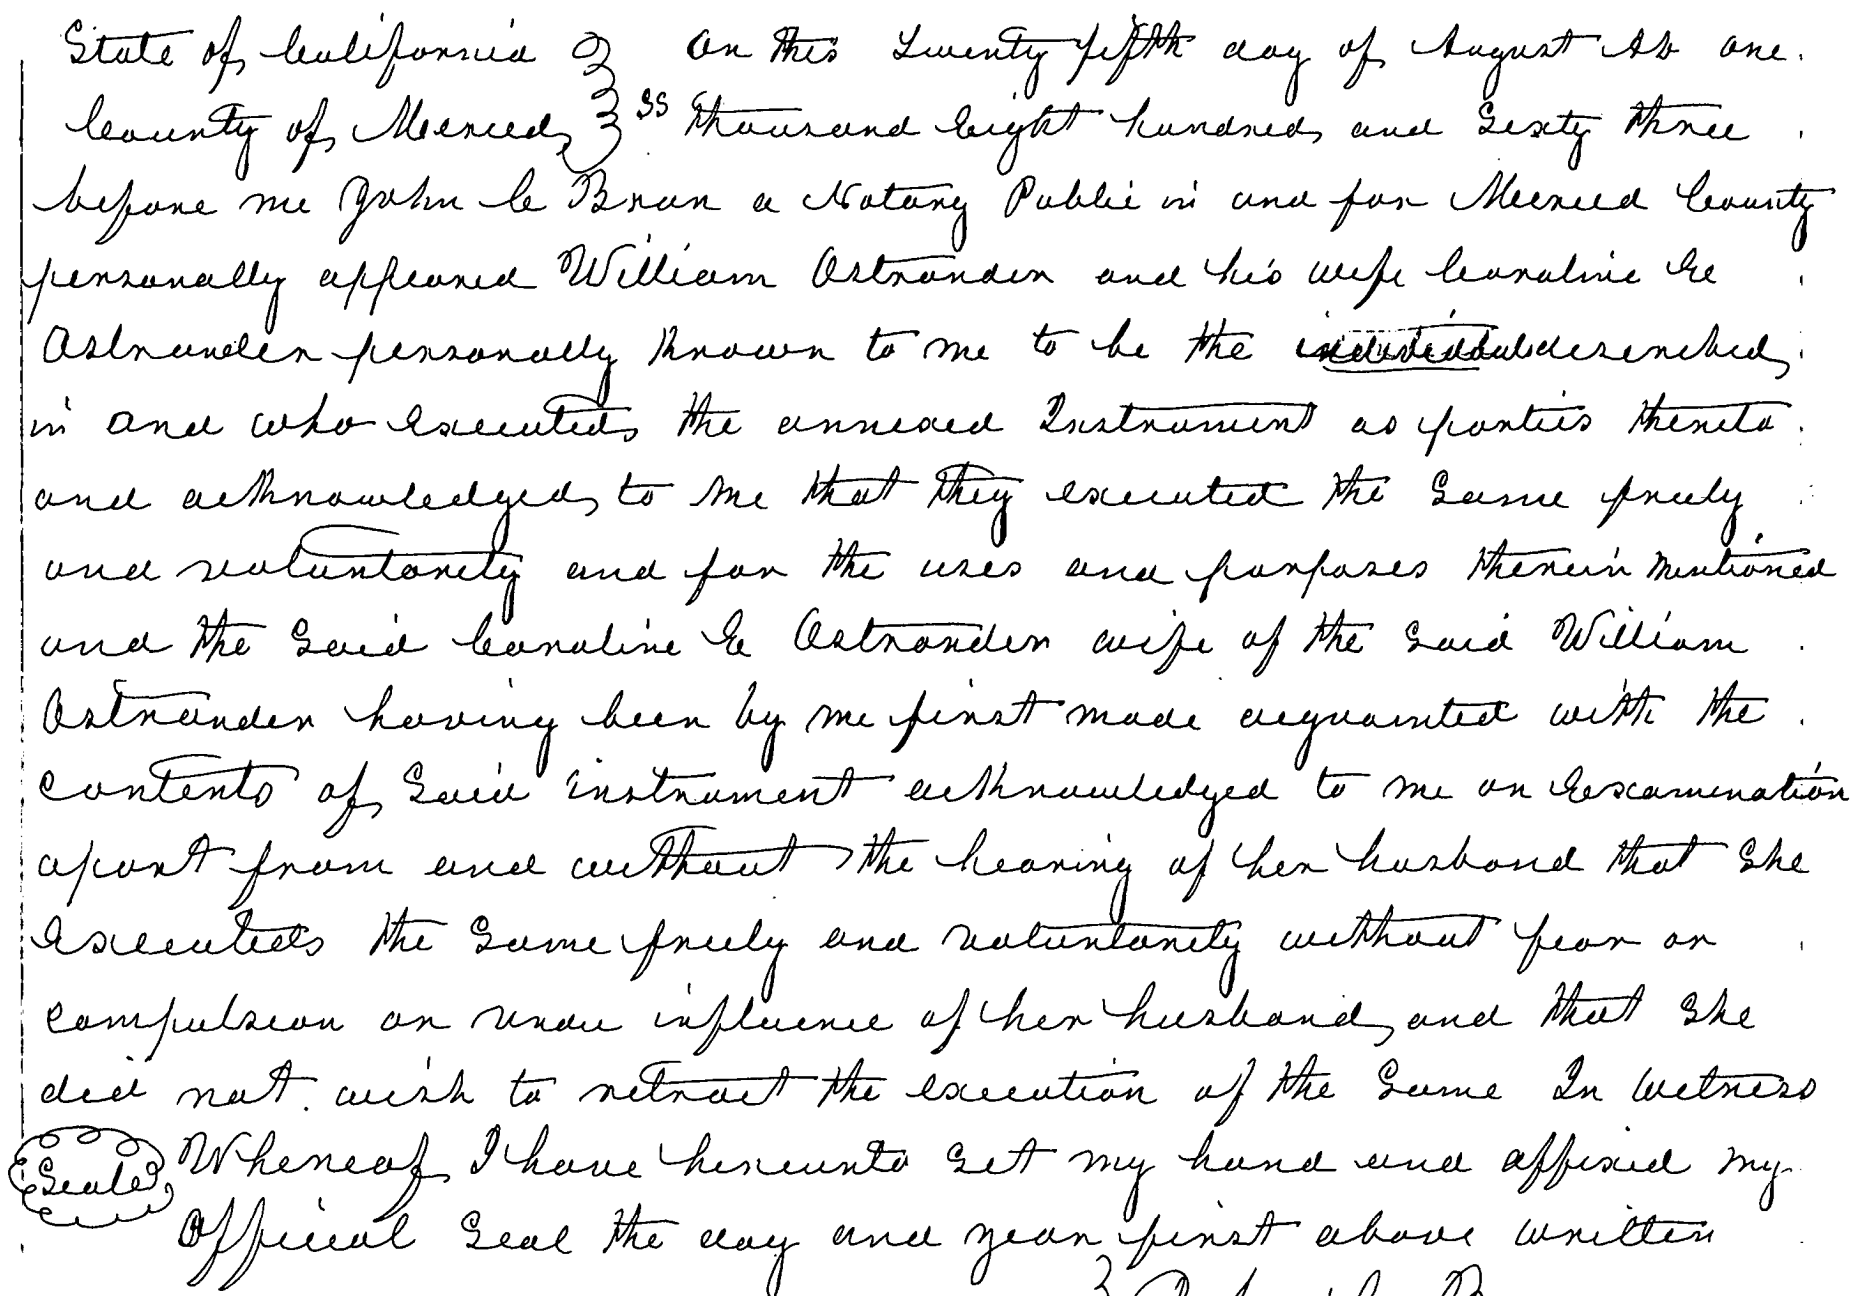 State of California } On this Twenty fifth day of August AD one
County of Merced } ss thousand Eight hundred and Sixty three
before me John C Bran a Notary Public in and for Merced County
personally appeared William Ostrander and his wife Caroline E
Ostrander personally known to me to be the individual described
in and who Executed the annexed Instrument as parties thereto
and acknowledged to me that they executed the Same freely
and voluntarily and for the uses and purposes therein mentioned
and the Said Caroline E Ostrander wife of the Said William
Ostrander having been by me first made acquainted with the
contents of Said instrument acknowledged to me on Examination
apart from and without the hearing of her husband that She
Executed the Same freely and voluntarily without fear or
compulsion or undue influence of her husband and that She
did not wish to retract the execution of the Same In Witness
Whereof I have hereunto Set my hand and affixed my
(Seal) Official Seal the day and year first above written